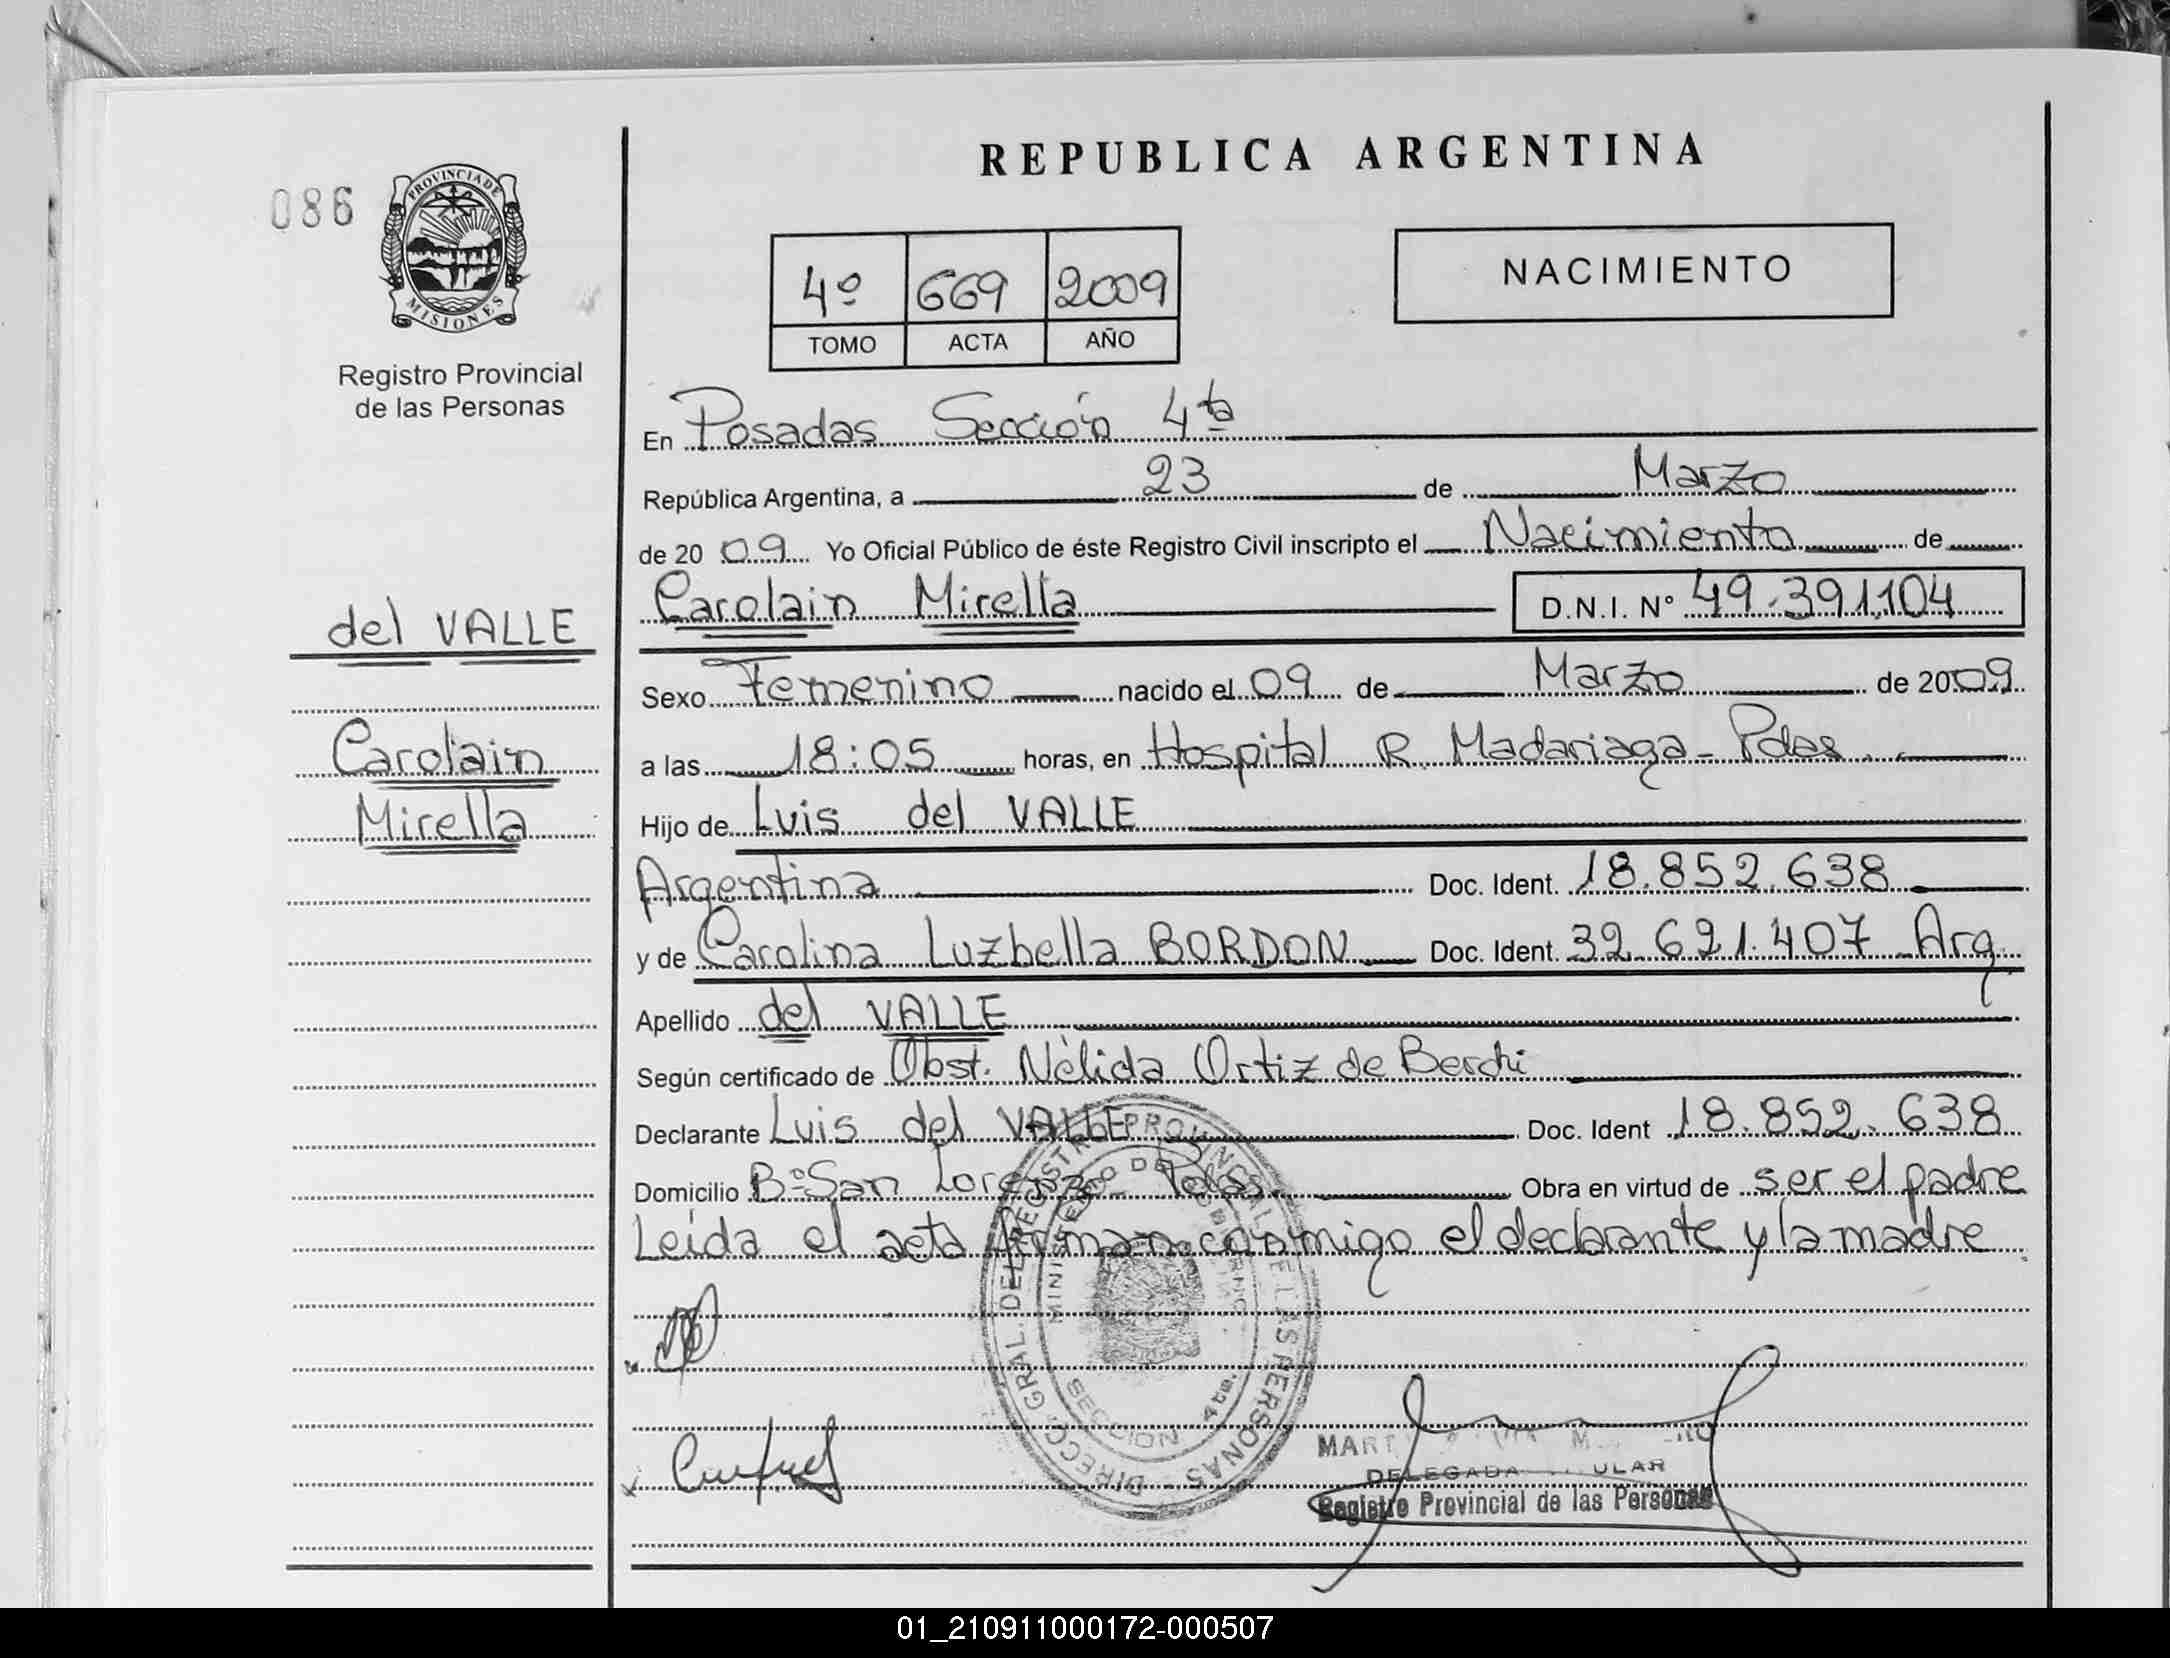 REPUBLICA ARGENTINA
086
PROVINCIA DE
MISIONES
Registro Provincial
de las Personas
4º 669 2009
TOMO ACTA AÑO
NACIMIENTO
En Posadas Sección 4ta
República Argentina, a 23 de Marzo
de 2009 Yo Oficial Público de éste Registro Civil inscripto el Nacimiento de
Carolain Mirella D.N.I. Nº 49.391.104
del VALLE
Carolain
Mirella
Sexo Femenino nacido el 09 de Marzo de 2009
a las 18:05 horas, en Hospital R. Madariaga - Pdas.
Hijo de Luis del VALLE
Argentina Doc. Ident. 18.852.638
y de Carolina Luzbella BORDON Doc. Ident. 32.621.407 Arg.
Apellido del VALLE
Según certificado de Obst. Nélida Ortiz de Berchi
Declarante Luis del VALLE Doc. Ident 18.852.638
Domicilio Bº San Lorenzo - Pdas. Obra en virtud de ser el padre
Leída el acta firman conmigo el declarante y la madre.
DIRECC. GRAL. DEL REGISTRO PROVINCIAL DE LAS PERSONAS
MINISTERIO DE GOBIERNO
SECCION 4ta.
DELEGADA
Registro Provincial de las Personas
01_210911000172-000507